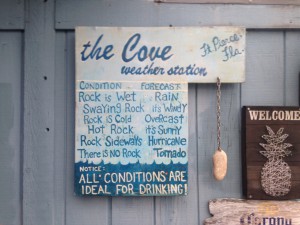 the Cove
Ft. Pierce,
Fla.
weather station
CONDITION FORECAST
Rock is Wet Rain
Swaying Rock its Windy
Rock is Cold Overcast
Hot Rock it's Sunny
Rock Sideways Hurricane
There is NO Rock Tornado
NOTICE:
ALL CONDITIONS ARE
IDEAL FOR DRINKING!
WELCOME
Corona